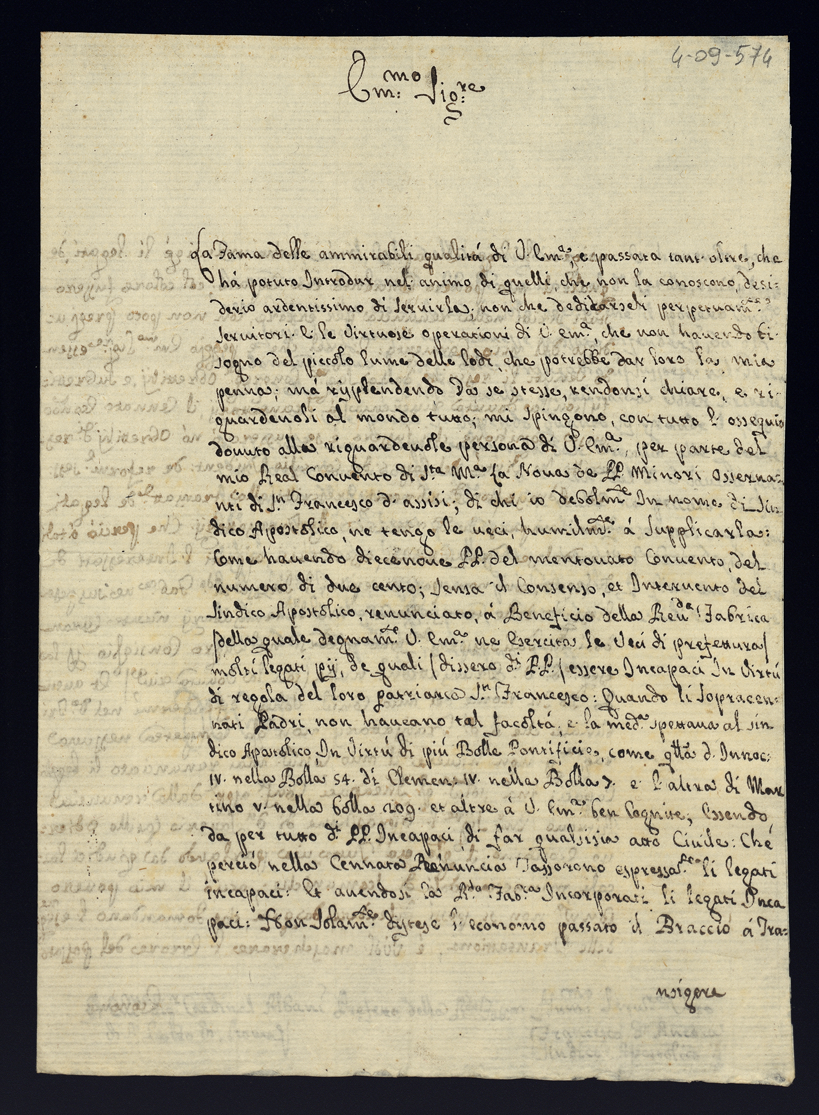 4-09-574
Em:mo Sig:re
La Fama delle ammirabili qualitá di V. Em:a, e passata tant oltre, che
há potuto Introdur nel animo di quelli, che non la conoscono, desi-
derio ardentissimo di seruirla; non che dedicarseli perpetuam:te
seruitori. E le Virtuose operationi di V. em:a, che non hauendo bi-
sogno del piccolo lume delle lodi, che potrebbe dar loro la mia
penna; má risplendendo da se stesse, rendonsi chiare, e ri-
guardeuoli al mondo tutto; mi spingono, con tutto l'ossequio
douuto alla riguardeuole persona di V. Em:a, per parte del
mio Real Conuento di S:ta M:a la Noua de PP. Minori Osserua-
nti di S:n Francesco d'assisi; di chi io debolm:te In nome di Sin-
dico Apostolico, ne tengo le ueci, humilm:te á supplicarla:
Come hauendo diecenoue PP. del mentouato Conuento, del
numero di due cento; senza il Consenso, et Interuento del
Sindico Apostolico, renunciato, á Beneficio della Reu:da Fabrica
/della quale degnam:te V. Em:a ne Esercita le Veci di prefettura/
molti legati pij, de quali /dissero d:i PP./ essere Incapaci In Virtú
di regola del loro patriarca S:n Francesco: Quando li sopracen-
nati Padri, non haueano tal facoltá, e la med:a spettaua al sin
dico Apostolico In Virtú di piú Bolle Pontificie, come q:lla d'Innoc:
IV. nella Bolla 54. di Clemen: IV. nella Bolla 7. e l'altra di Mar
tino V. nella bolla 209. et altre á V. Em:a ben Cognite, Essendo
da per tutto d:i PP. Incapaci di far qualsisia atto Ciuile: Ché
perció nella Cennata Renuncia Tassorono espressa:te li legati
incapaci: Et auendosi la R:da Fab:ca Incorporati li legati Inca
paci: Non solam:te distese l'economo passato il Braccio á Tra-
nsigere